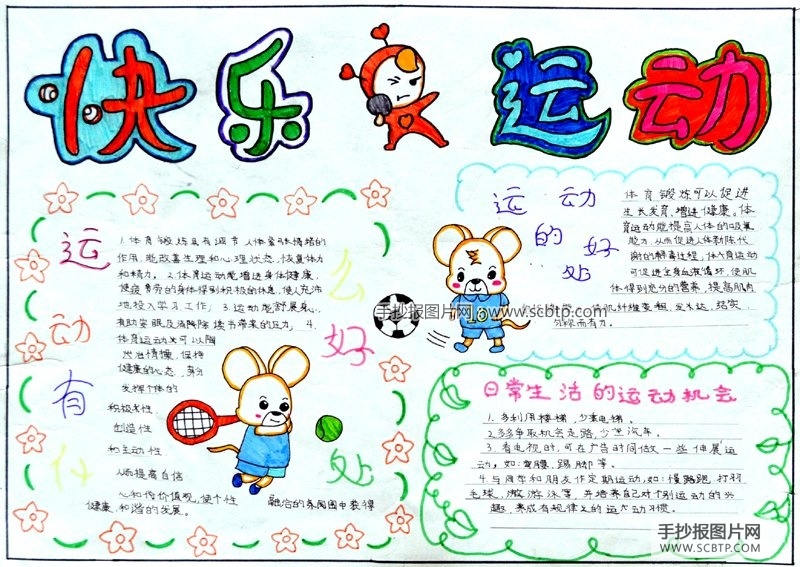 快乐 运动
运动有什么好处
1.体育锻炼具有调节人体紧张情绪的
作用,能改善生理和心理状态,恢复体力
和精力; 2.体育运动能增进身体健康,
使疲劳的身体得到积极的休息,使人充沛
地投入学习,工作; 3.运动能舒展身心,
有助安眠及消除读书带来的压力, 4.
体育运动 可以陶
冶情操, 保持
健康的心态, 充分
发挥个体的
积极
创造性
和主动性
从而提高自信
心和价值观,使个性 融合的氛围中获得
健康,和谐的发展。
运动的好处
体育锻炼可以促进
生长发育,增进健康。体
育运动能提高人体的吸氧
能力,从而促进人体新陈代
谢的解毒过程,体育运动
可促进全身血液循环,使肌
体得到充分的营养,提高肌肉
肌纤维变粗,发达,结实,
匀称而有力。
手抄报图片网 www.scbtp.com
日常生活的运动机会
1.多利用楼梯,少乘电梯。
2.多争取机会走路,少坐汽车。
3.看电视时,可在广告时间做一些伸展运
动,如:弯腰、踢脚等。
4.与同学和朋友作定期运动,如:慢跑、打羽
毛球,游泳等,并培养自己对个别运动的兴
趣,养成有规律的运动习惯。
手抄报图片网
WWW.SCBTP.COM